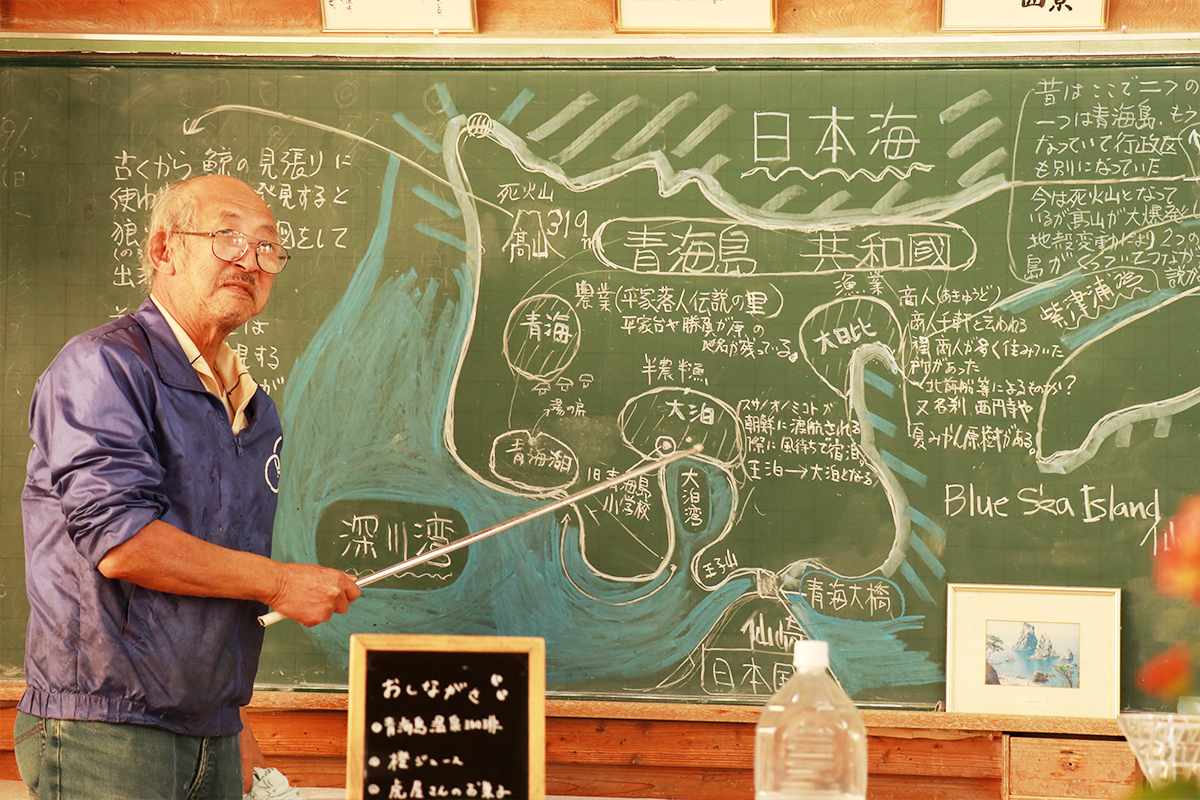 古くから鯨の見張りに
日本海
昔はここで二つの
一つは青海島、もう
なっていて行政区
も別になっていた
今は死火山となって
いるが髙山が大爆発し
地殻変動により2つの
島がくっついてつなが
死火山
髙山
319m
青海島 共和國
紫津浦
農業(平家落人伝説の里)
平家台や勝負が原の
地名が残っている。
青海
漁業
大日比
商人(あきゅうど)
商人千軒と云われる
程商人が多く住んでいた
時があった
北前船等によるものか?
又名刹、西円寺や
夏みかん原樹がある。
半農半漁
大泊
スサノオノミコトが
朝鮮に渡航される
際に風待で宿泊。
王泊→大泊となる
青海湖
旧青海島
小学校
大泊湾
深川湾
王子山
青海大橋
仙崎
日本国
Blue Sea Island
おしながき
青海島温泉
橙ジュース
虎屋さんのお菓子